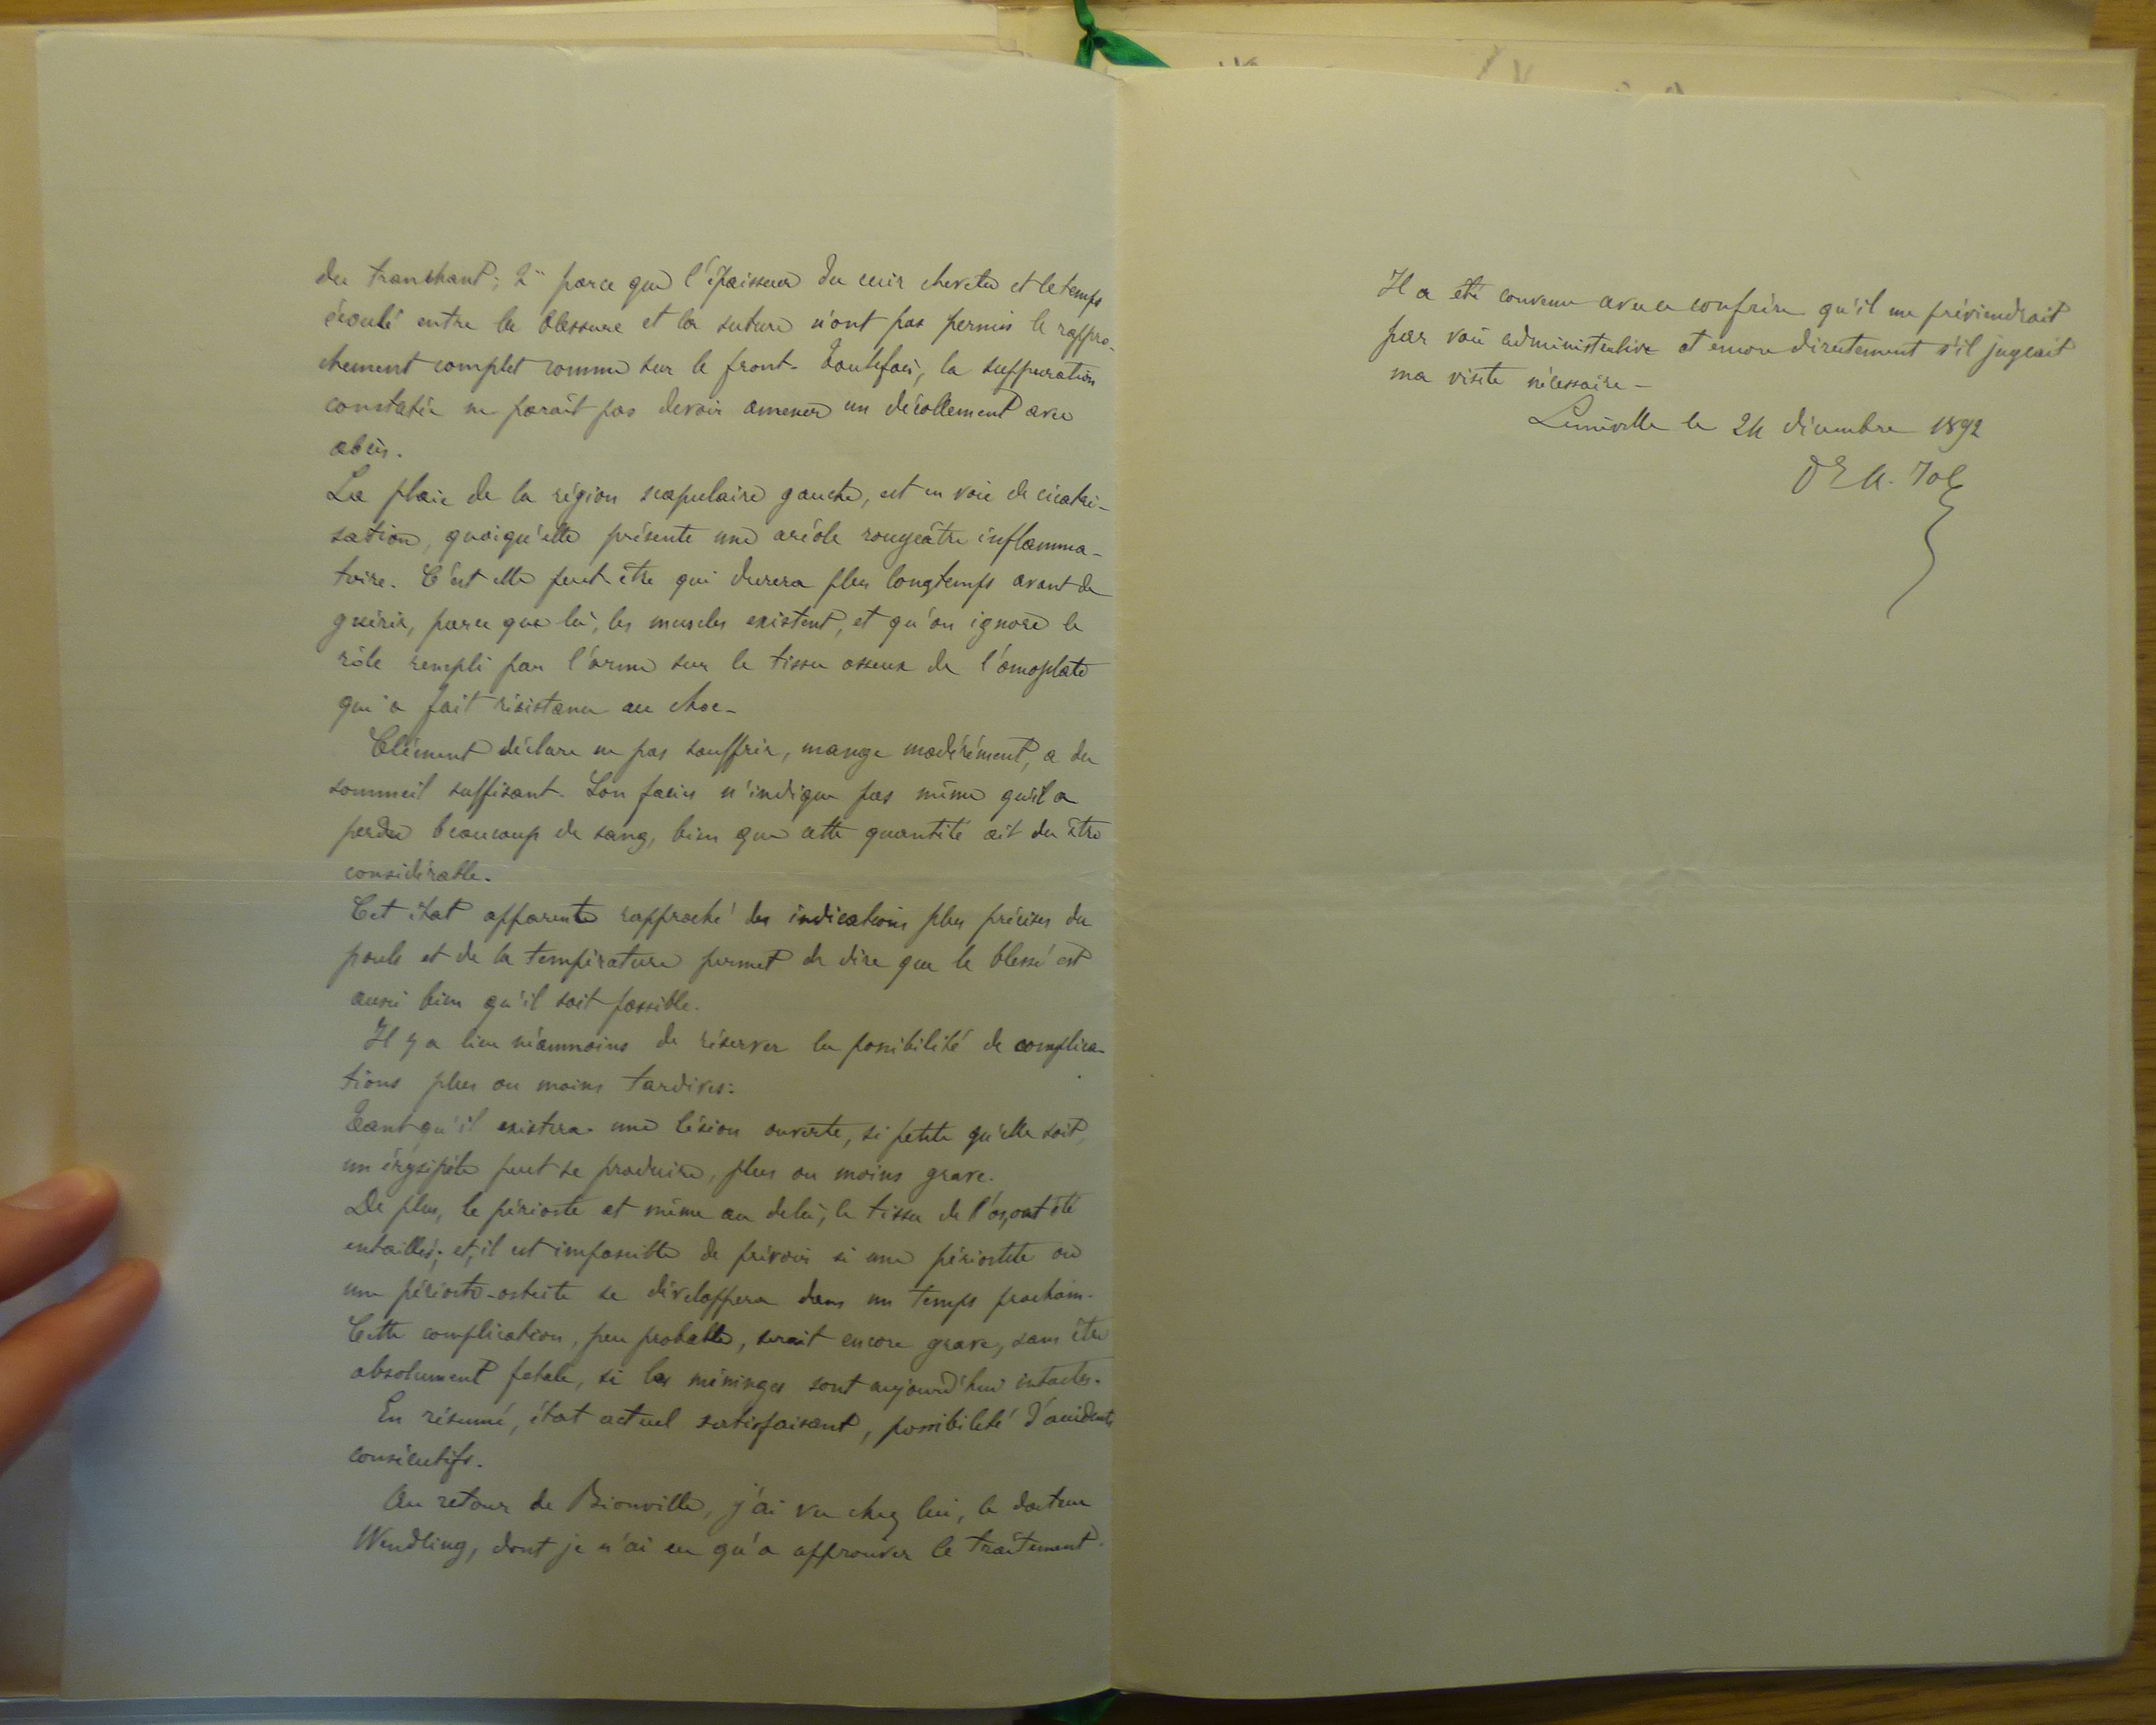 du tranchant; 2° parce que l'épaisseur du cuir chevelu et le temps
écoulé entre la blessure et la suture n'ont pas permis le rappro-
chement complet comme sur le front. Toutefois, la suppuration
constatée ne paraît pas devoir amener un décollement avec
abcès.
La plaie de la région scapulaire gauche, est en voie de cicatri-
sation, quoiqu'elle présente une aréole rougeâtre inflamma-
toire. C'est elle peut-être qui durera plus longtemps avant de
guérir, parce que là, les muscles existent, et qu'on ignore le
rôle rempli par l'arme sur le tissu osseux de l'omoplate
qui a fait résistance au choc-
Clément déclare ne pas souffrir, mange modérément, a du
sommeil suffisant. Son facies n'indique pas même qu'il a
perdu beaucoup de sang, bien que cette quantité ait du être
considérable.
Cet état apparent rapproché des indications plus précises du
pouls et de la température permet de dire que le blessé est
aussi bien qu'il soit possible.
Il y a lieu néanmoins de réserver la possibilité de complica-
tions plus ou moins tardives:
Tant qu'il existera une lésion ouverte, si petite qu'elle soit,
un érysipèle peut se produire, plus ou moins grave.
De plus, le périoste et même au delà, le tissu de l'os, ont été
entaillés; et, il est impossible de prévoir si une périostite ou
une périosto-ostéite se développera dans un temps prochain.
Cette complication, peu probable, serait encore grave, sans être
absolument fatale, si les méninges sont aujourd'hui intactes.
En résumé, état actuel satisfaisant, possibilité d'accidents
consécutifs.
Au retour de Bionville, j'ai vu chez lui, le docteur
Wendling, dont je n'ai eu qu'a approuver le traitement.
Il a été convenu avec ce confrère qu'il me préviendrait
par voie administrative et encore directement s'il jugeait
ma visite nécessaire-
Lunéville le 24 décembre 1892
Dr A.